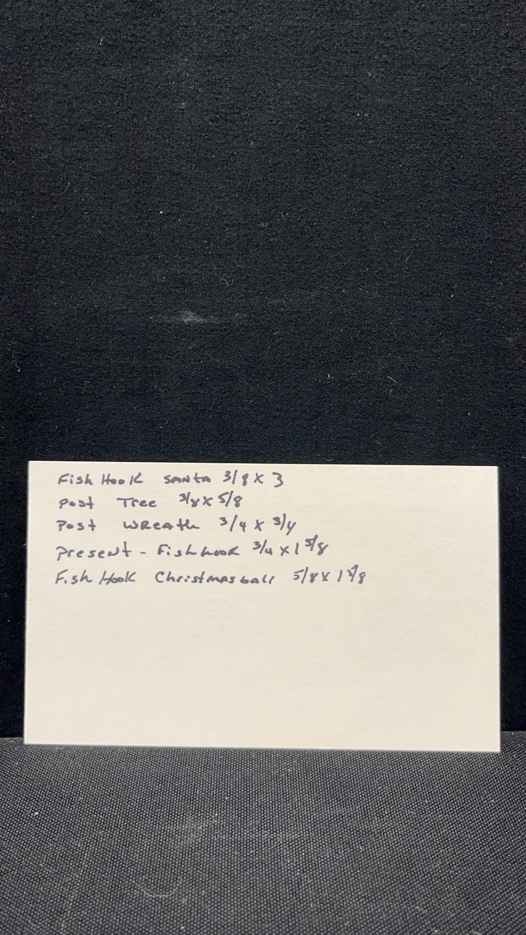 Fish Hook Santa 3/8 x 3
Post Tree 3/8 x 5/8
Post Wreath 3/4 x 3/4
Present - Fishhook 3/4 x 1 5/8
Fish Hook Christmas ball 5/8 x 1